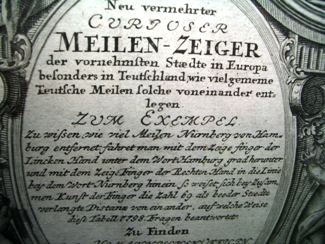 Neu vermehrter
CURIOSER
MEILEN-ZEIGER
der vornehmsten Stædte in Europa
besonders in Teutschland, wie viel gemeine
Teutsche Meilen solche voneinander ent-
legen.
ZUM EXEMPEL
Zu wissen, wie viel Meilen Nürnberg von Ham-
burg entfernet: fahret man mit dem Zeige finger der
Lincken Hand unter dem Wort Hamburg gradherunter
und mit dem Zeig Finger der Rechten Hand in die Linie
bey dem Wort Nürnberg hinein, so weiset sich bey Zusam-
men Kunst der Finger die Zahl 69 als beeder Stædte
verlangte Distanz von einander, auf welche Weise
diese Tabell 1798 Fragen beantwortet.
Zu Finden